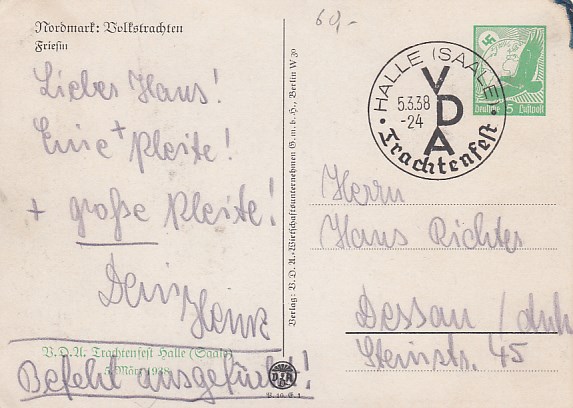 Nordmark: Volkstrachten
Friesin
Lieber Hans!
Eine + Pleite!
+ große Pleite!
Dein Heinz
V.D.A. Trachtenfest Halle (Saale)
5. März 1938
Befehl ausgeführt!!
Verlag: V.D.A.-Wirtschaftsunternehmen G.m.b.H., Berlin W 30
VDA
V. 16. E. 1.
60,-
HALLE (SAALE)
VDA
5.3.38
-24
Trachtenfest
Deutsche Luftpost
5
Herrn
Hans Richter
Dessau / Anh
Steinstr. 45